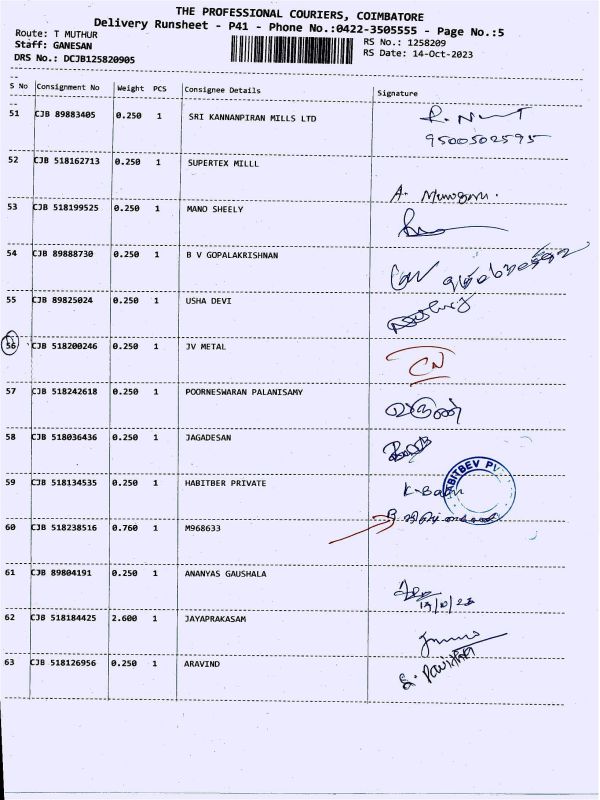 THE PROFESSIONAL COURIERS, COIMBATORE
Delivery Runsheet - P41 - Phone No.:0422-3505555 - Page No.:5
Route: T MUTHUR
RS No.: 1258209
Staff: GANESAN
RS Date: 14-Oct-2023
DRS No.: DCJB125820905
S No Consignment No Weight PCS Consignee Details Signature
51 CJB 89883405 0.250 1 SRI KANNANPIRAN MILLS LTD
9500502595
52 CJB 518162713 0.250 1 SUPERTEX MILLL
53 CJB 518199525 0.250 1 MANO SHEELY
54 CJB 89888730 0.250 1 B V GOPALAKRISHNAN
55 CJB 89825024 0.250 1 USHA DEVI
56 CJB 518200246 0.250 1 JV METAL
CN
57 CJB 518242618 0.250 1 POORNESWARAN PALANISAMY
58 CJB 518036436 0.250 1 JAGADESAN
59 CJB 518134535 0.250 1 HABITBER PRIVATE
K-Babu
ABITBEV PV
60 CJB 518238516 0.760 1 M968633
61 CJB 89804191 0.250 1 ANANYAS GAUSHALA
14/10/23
62 CJB 518184425 2.600 1 JAYAPRAKASAM
63 CJB 518126956 0.250 1 ARAVIND